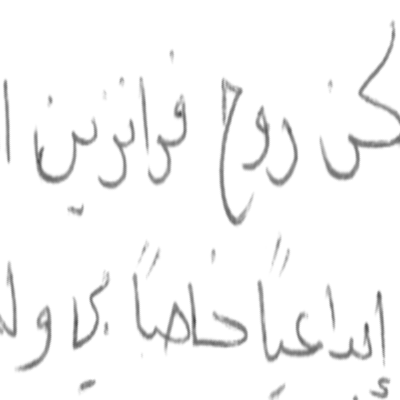 كن روح فرانزين ا
إبداعيًا خاصًا بي ول